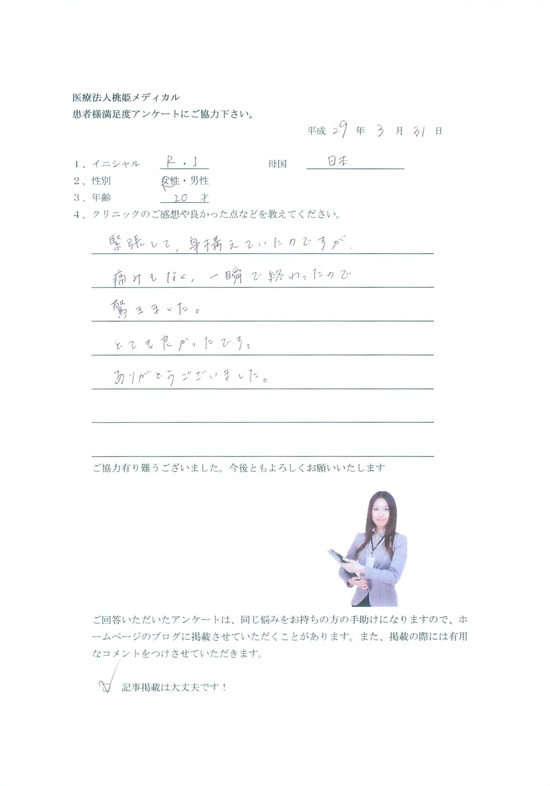 医療法人桃姫メディカル
患者様満足度アンケートにご協力下さい。
平成 29 年 3 月 31 日
1、イニシャル R.I 母国 日本
2、性別 女性・男性
3、年齢 20才
4、クリニックのご感想や良かった点などを教えてください。
緊張して、身構えていたのですが、
痛みもなく、一瞬で終わったので
驚きました。
とても良かったです。
ありがとうございました。
ご協力有り難うございました。今後ともよろしくお願いいたします
ご回答いただいたアンケートは、同じ悩みをお持ちの方の手助けになりますので、ホ
ームページのブログに掲載させていただくことがあります。また、掲載の際には有用
なコメントをつけさせていただきます。
記事掲載は大丈夫です！